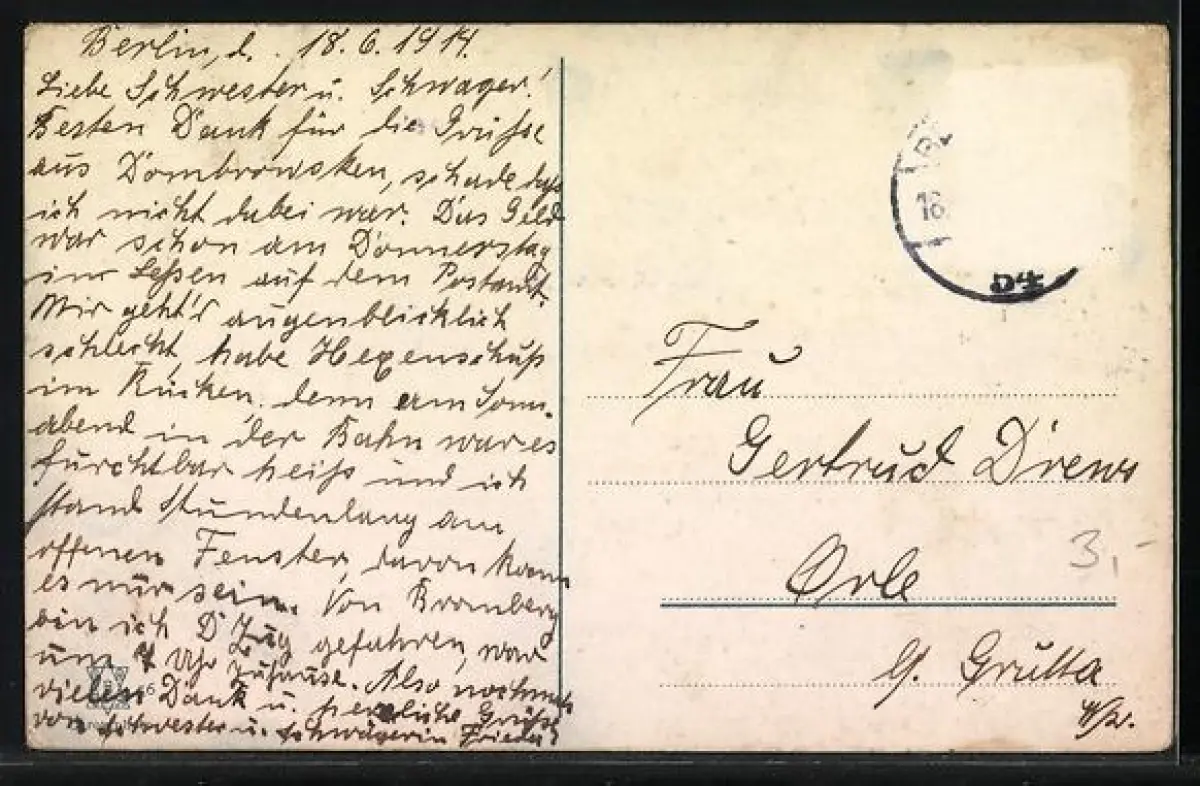 Berlin, d. 18.6.1914.
Liebe Schwester u. Schwager!
Besten Dank für die Grüße
aus Dombrowsken, schade daß
ich nicht dabei war. Das Geld
war schon am Donnerstag
in Leßen auf dem Postamt.
Mir geht's augenblicklich
schlecht, habe Hexenschuß
im Rücken. denn am Sonn-
abend in der Bahn war es
furchtbar heiß und ich
stand Stundenlang am
offenen Fenster, davon kann
es nur sein. Von Bromberg
bin ich D Zug gefahren, war
um 7 Uhr Zuhause. Also nochmals
vielen Dank u. herzliche Grüße
von Schwester u. Schwägerin Frieda
18.
Frau
Gertrud Drews
Orle
b/. Grutta
W/Pr.
3,-